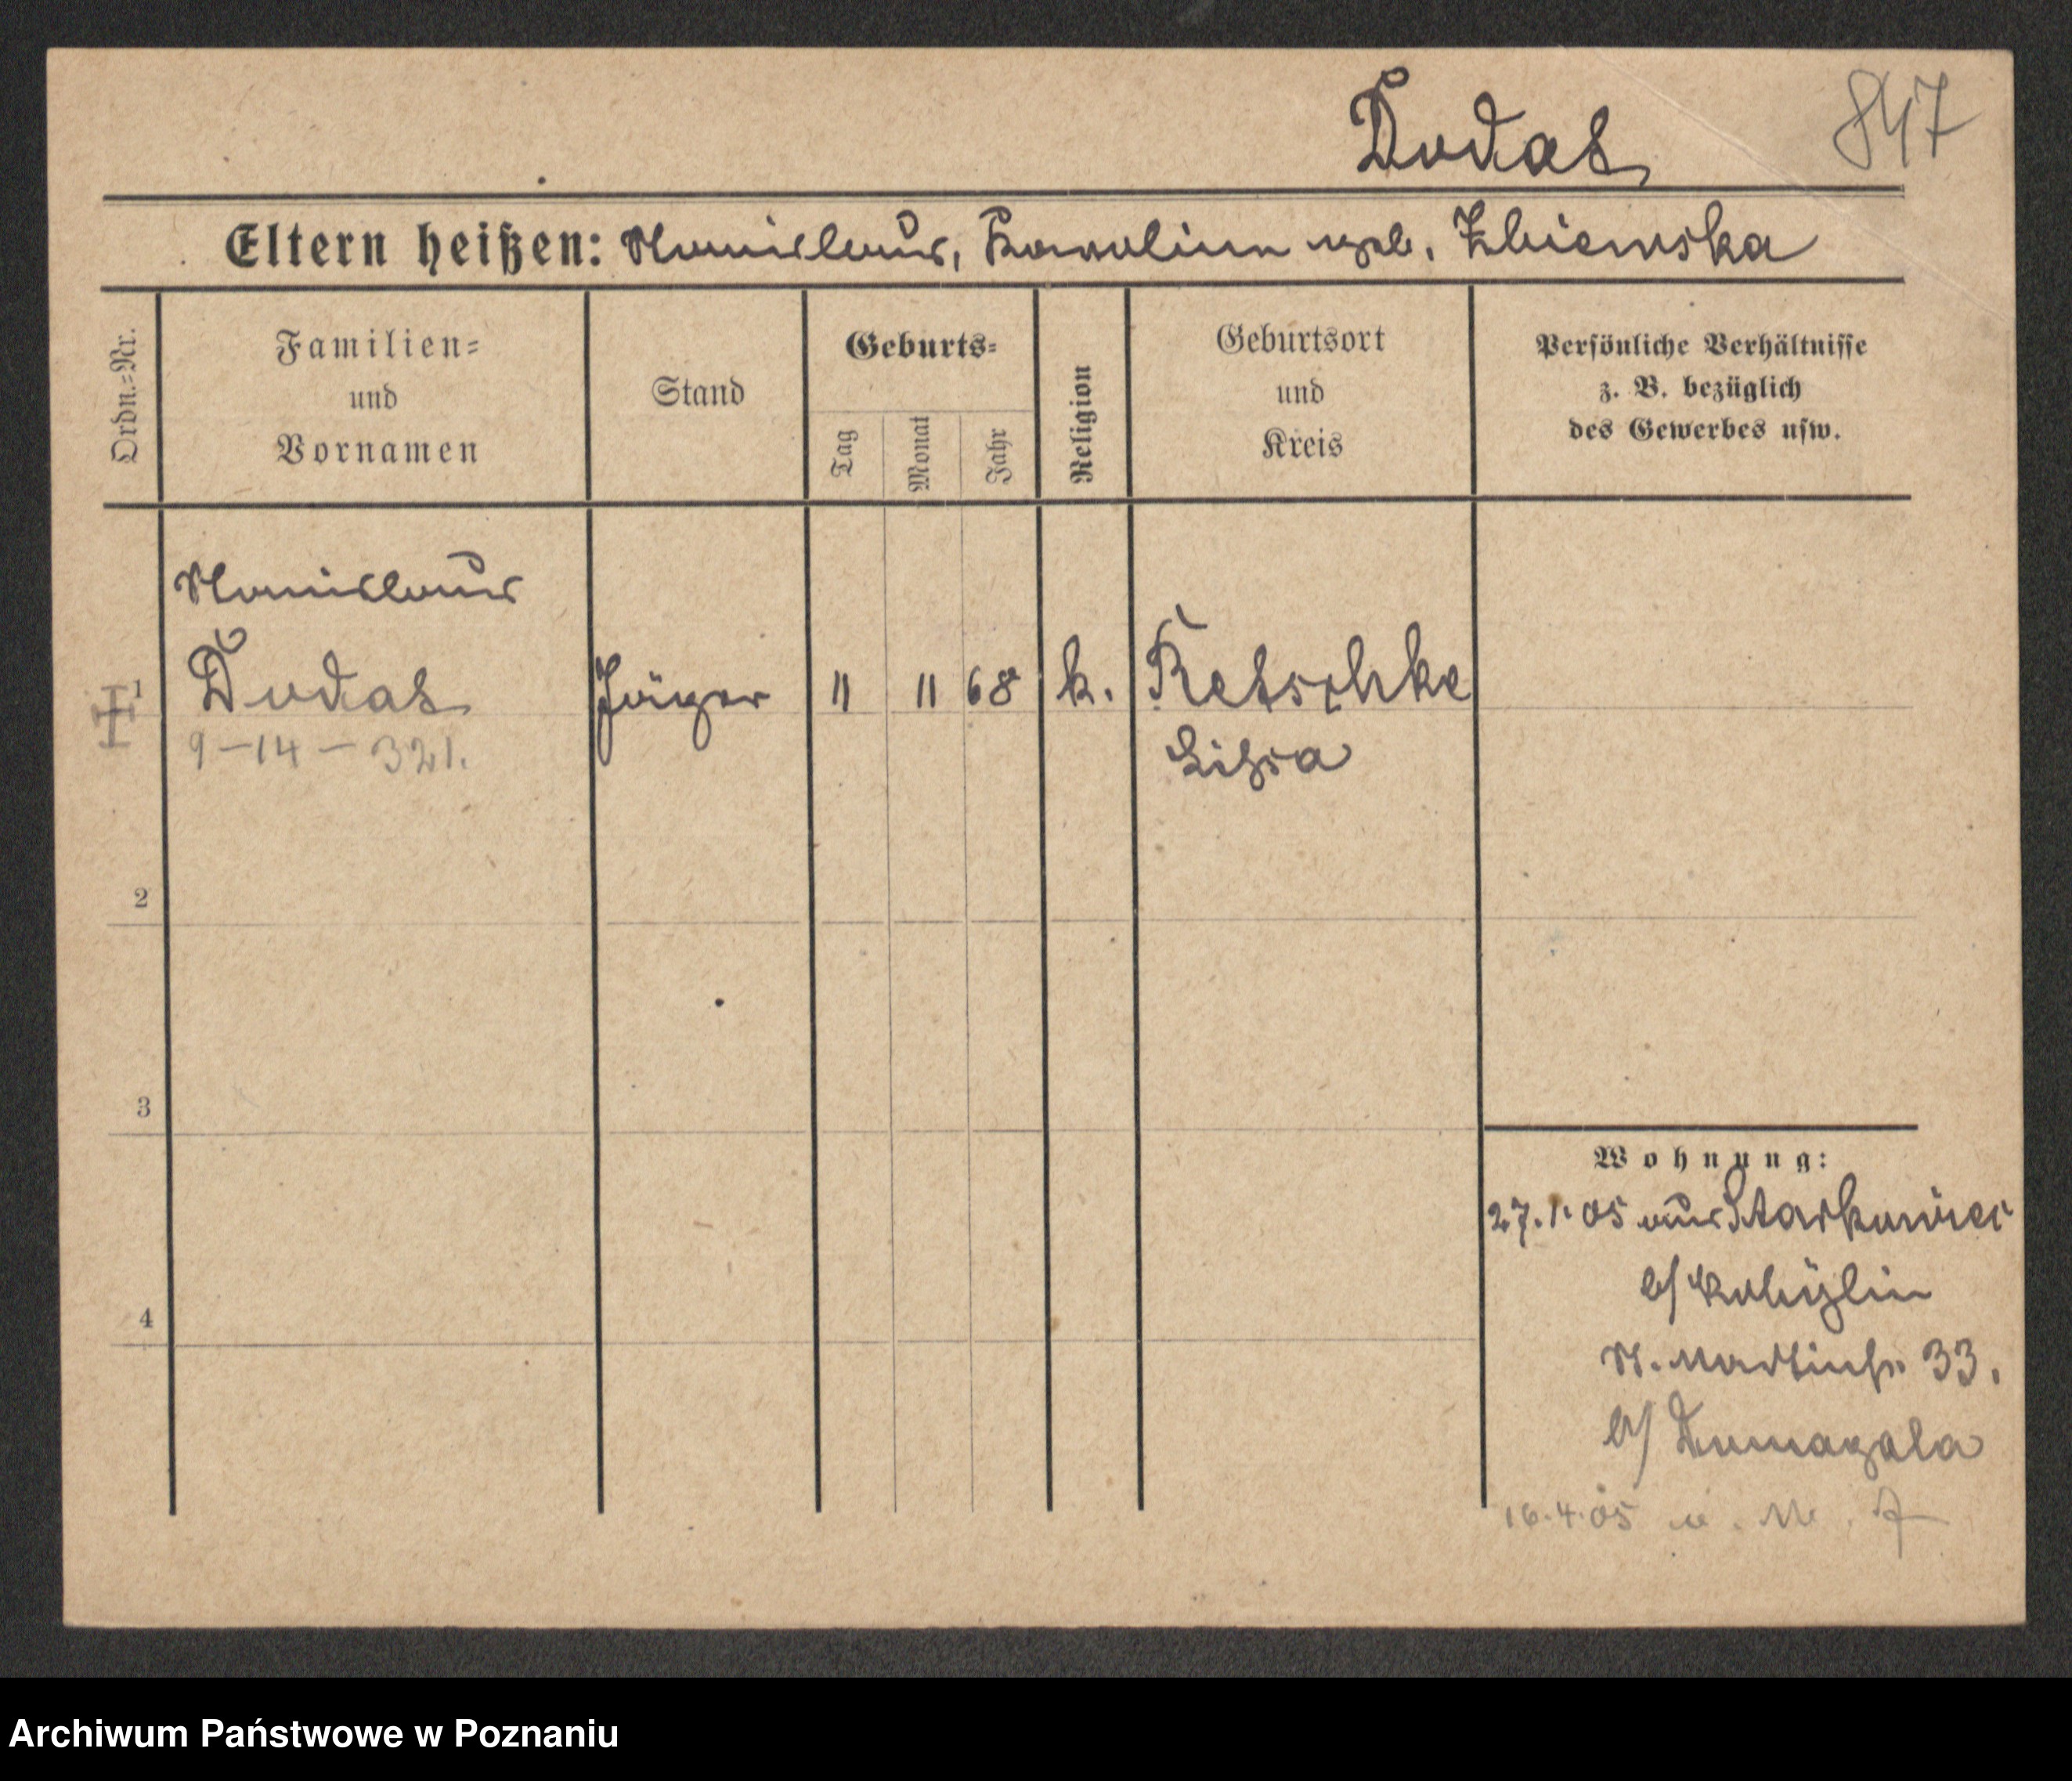 Dudas
847
Eltern heißen: Stanislaus, Karolina geb. Zbierska
Ordn.=Nr.
Familien=
und
Vornamen
Stand
Geburts=
Tag
Monat
Jahr
Religion
Geburtsort
und
Kreis
Persönliche Verhältnisse
z. B. bezüglich
des Gewerbes usw.
Stanislaus
1 Dudas Jäger 11 11 68 k. Retschke
9-14-321. Lissa
2
3
4
Wohnung:
27.1.05 aus Starkowiec
b/ Kobylin
St. Martinstr. 33.
b/ Domagala
16.4.05 u. M.
Archiwum Państwowe w Poznaniu